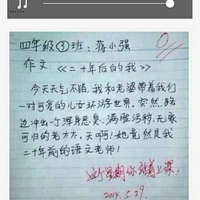 四年级③班：蒋小强
作文：《二十年后的我》
今天天气不错，我和老婆带着我们
一对可爱的儿女环游世界，突然，路
边冲出一个浑身恶臭，满脸污秽，无家
可归的老太太，天啊！她竟然是我
二十年前的语文老师！
0
这个学期你站着上课
2014.5.29.